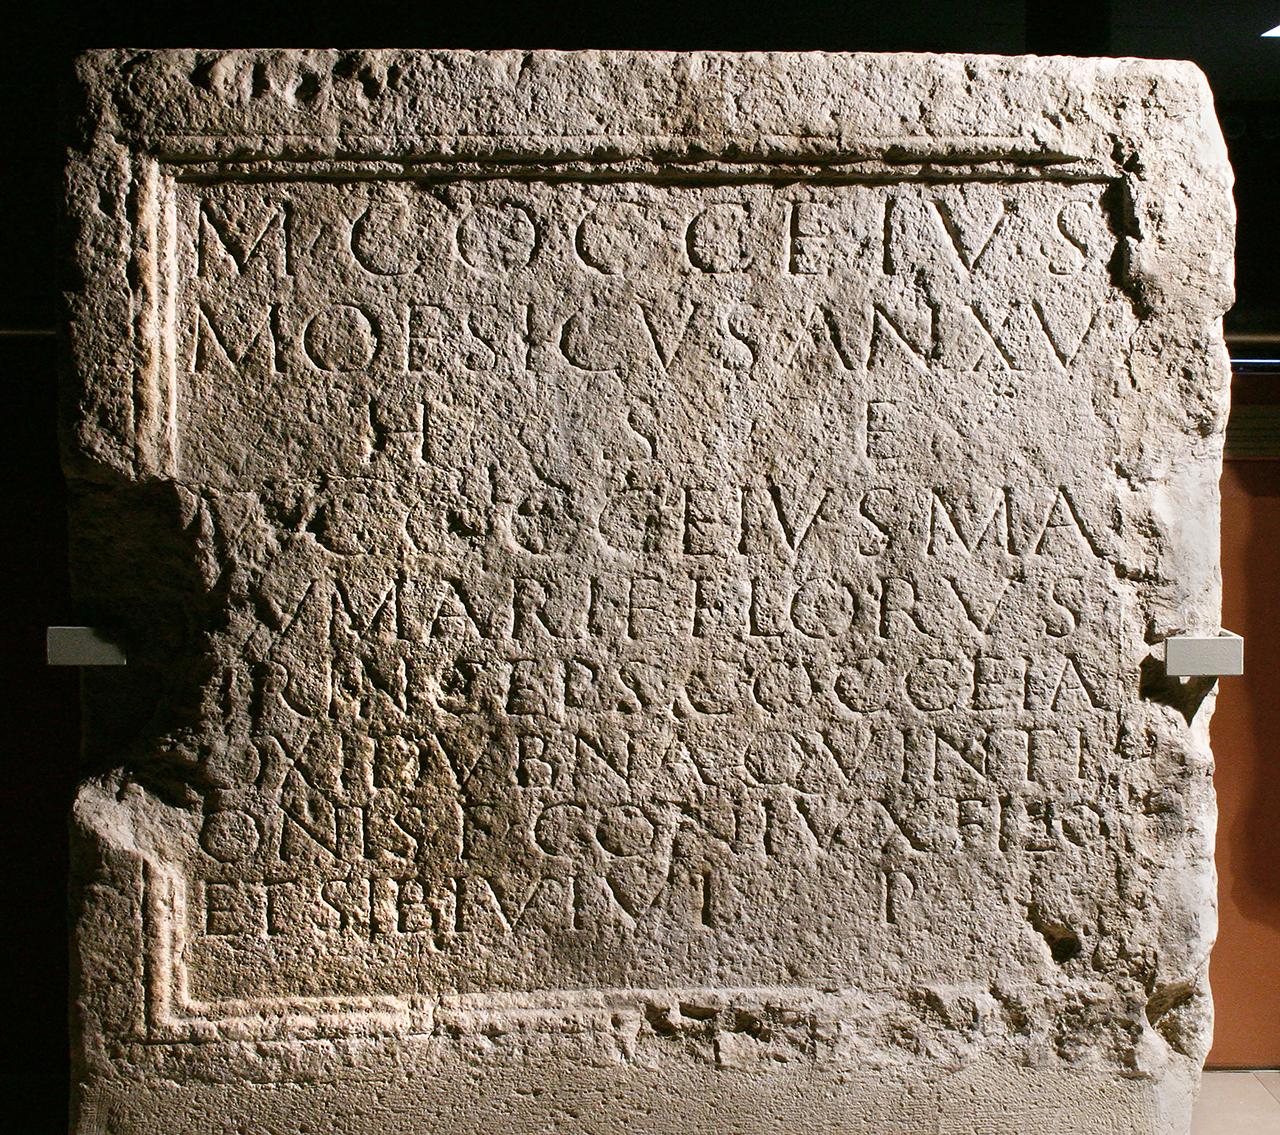 M COCCEIVS
MOESICVS AN XV
H S E
COCCEIVS MA
XIMARI F FLORVS
COCCEIA
QVINTI
ONIS F CONIVX FILIO
ET SIBI VIVI P